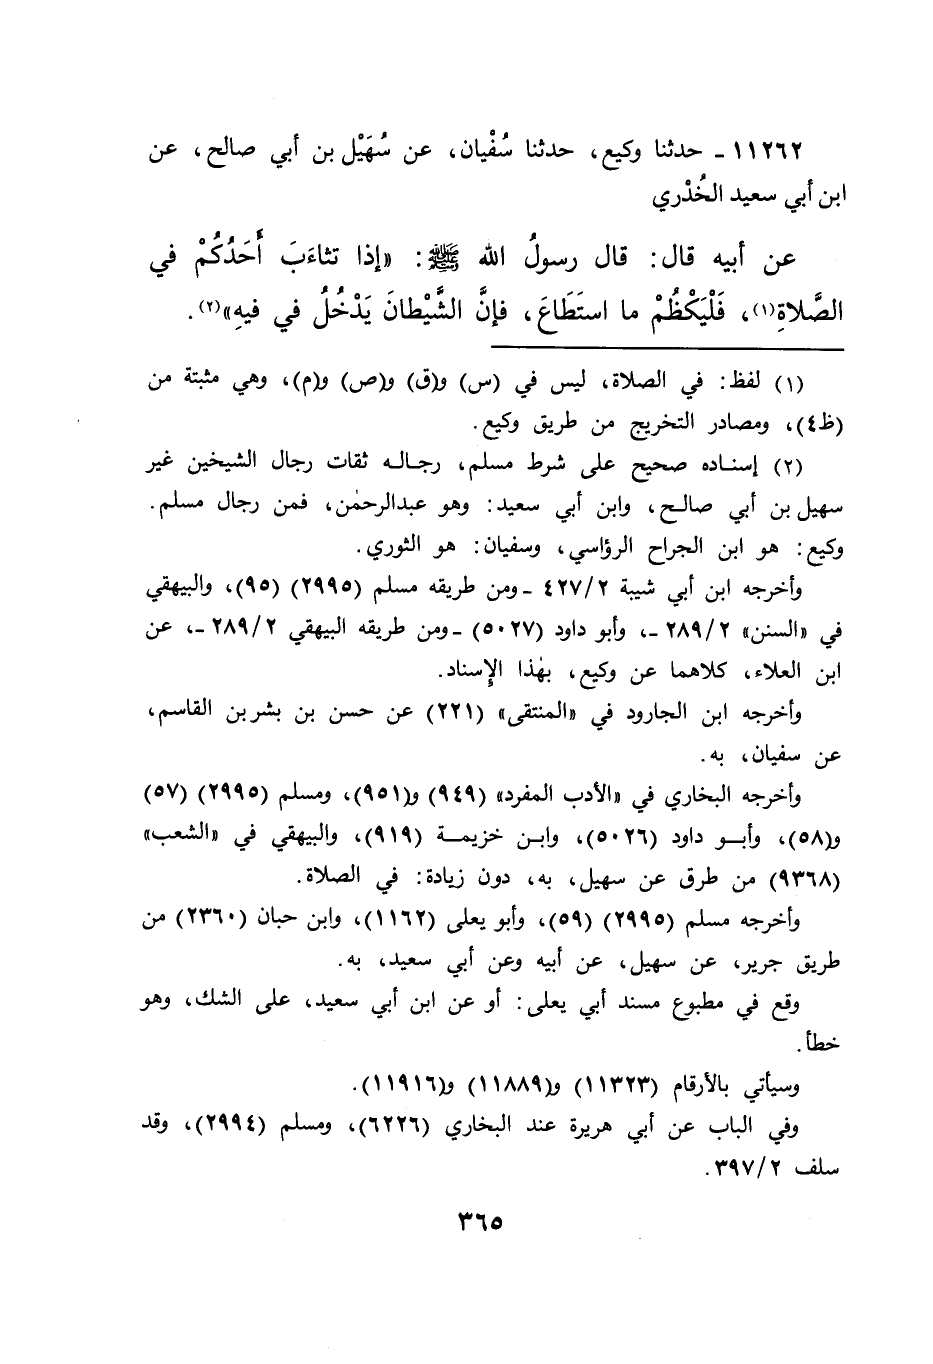 ١١٢٦٢ ـ حدثنا وكيع، حدثنا سُفْيان، عن سُهَيْل بن أبي صالح، عن
ابن أبي سعيد الخُدْري
عن أبيه قال: قال رسولُ الله ﷺ: «إذا تثاءَبَ أَحَدُكُمْ في
الصَّلاةِ(١)، فَلْيَكْظُمْ ما استَطَاعَ، فإنَّ الشَّيْطانَ يَدْخُلُ في فيهِ»(٢).
(١) لفظ: في الصلاة، ليس في (س) و(ق) و(ص) و(م)، وهي مثبتة من
(ظ٤)، ومصادر التخريج من طريق وكيع.
(٢) إسناده صحيح على شرط مسلم، رجاله ثقات رجال الشيخين غير
سهيل بن أبي صالح، وابن أبي سعيد: وهو عبدالرحمٰن، فمن رجال مسلم.
وكيع: هو ابن الجراح الرؤاسي، وسفيان: هو الثوري.
وأخرجه ابن أبي شيبة ٤٢٧/٢ ـ ومن طريقه مسلم (٢٩٩٥) (٩٥)، والبيهقي
في «السنن» ٢٨٩/٢ ـ، وأبو داود (٥٠٢٧) ـ ومن طريقه البيهقي ٢٨٩/٢ ـ، عن
ابن العلاء، كلاهما عن وكيع، بهٰذا الإسناد.
وأخرجه ابن الجارود في «المنتقى» (٢٢١) عن حسن بن بشر بن القاسم،
عن سفيان، به.
وأخرجه البخاري في «الأدب المفرد» (٩٤٩) و(٩٥١)، ومسلم (٢٩٩٥) (٥٧)
و(٥٨)، وأبو داود (٥٠٢٦)، وابن خزيمة (٩١٩)، والبيهقي في «الشعب»
(٩٣٦٨) من طرق عن سهيل، به، دون زيادة: في الصلاة.
وأخرجه مسلم (٢٩٩٥) (٥٩)، وأبو يعلى (١١٦٢)، وابن حبان (٢٣٦٠) من
طريق جرير، عن سهيل، عن أبيه وعن أبي سعيد، به.
وقع في مطبوع مسند أبي يعلى: أو عن ابن أبي سعيد، على الشك، وهو
خطأ.
وسيأتي بالأرقام (١١٣٢٣) و(١١٨٨٩) و(١١٩١٦).
وفي الباب عن أبي هريرة عند البخاري (٦٢٢٦)، ومسلم (٢٩٩٤)، وقد
سلف ٣٩٧/٢.
٣٦٥